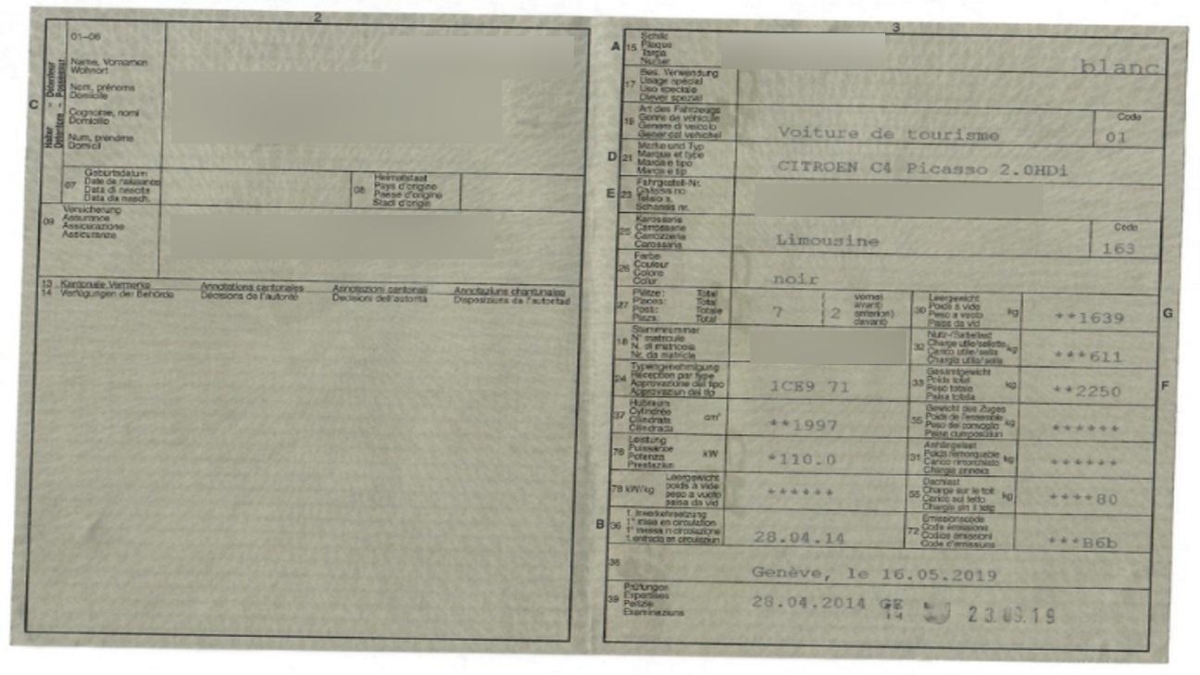 2
01-06
Name, Vornamen
Wohnort
Nom, prénoms
Domicile
Cognome, nomi
Domicilio
Num, prenoms
Domicil
C
Halter Détenteur
Detentore Possessur
07
Geburtsdatum
Date de naissance
Data di nascita
Data da nasch.
08
Heimatstaat
Pays d'origine
Paese d'origine
Stadi d'origin
09
Versicherung
Assurance
Assicurazione
Assicuranza
13 Kantonale Vermerke
14 Verfügungen der Behörde
Annotations cantonales
Décisions de l'autorité
Annotazioni cantonali
Decisioni dell'autorità
Annotaziuns chantunalas
Disposiziuns da l'autoritad
3
A 15
Schild
Plaque
Targa
Numer
blanc
17
Bes. Verwendung
Usage spécial
Uso speciale
Diever spezial
19
Art des Fahrzeugs
Genre de véhicule
Genere di veicolo
Gener dal vehichel
Voiture de tourisme
Code
01
D 21
Marke und Typ
Marque et type
Marca e tipo
Marca e tip
CITROEN C4 Picasso 2.0HDi
E 23
Fahrgestell-Nr.
Châssis no
Telaio n.
Schassis nr.
25
Karosserie
Carrosserie
Carrozzeria
Carossaria
Limousine
Code
163
26
Farbe
Couleur
Colore
Colur
noir
27
Plätze: Total
Places: Total
Posti: Totale
Plazs: Total
7
( 2
vorne)
avant)
anteriori)
davant)
30
Leergewicht
Poids à vide
Peso a vuoto
Paisa da vid
kg
**1639
G
18
Stammnummer
N° matricule
N. di matricola
Nr. da matricla
32
Nutz-/Sattellast
Charge utile/sellette
Carico utile/sella
Chargia utila/sella
kg
***611
24
Typengenehmigung
Réception par type
Approvazione del tipo
Approvaziun dal tip
1CE9 71
33
Gesamtgewicht
Poids total
Peso totale
Paisa totala
kg
**2250
F
37
Hubraum
Cylindrée
Cilindrata
Cilindrada
cm³
**1997
35
Gewicht des Zuges
Poids de l'ensemble
Peso del convoglio
Paisa cumposiziun
kg
******
76
Leistung
Puissance
Potenza
Prestaziun
kW
*110.0
31
Anhängelast
Poids remorquable
Carico rimorchiato
Chargia annexa
kg
******
78 kW/kg
Leergewicht
poids à vide
peso a vuoto
paisa da vid
******
55
Dachlast
Charge sur le toit
Carico sul tetto
Chargia sin il tetg
kg
****80
B 36
1. Inverkehrsetzung
1re mise en circulation
1a messa in circolazione
1. entrada en circulaziun
28.04.14
72
Emissionscode
Code émissions
Codice emissioni
Code d'emissiuns
***B6b
38
Genève, le 16.05.2019
39
Prüfungen
Expertises
Perizie
Examinaziuns
28.04.2014 GE
14
23.09.19